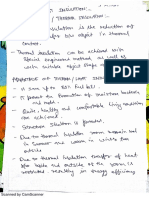 INSULATION :-
/ THERMAL INSULATION :-
insulation is the reduction of
for b/w object in thermal
contact.
Thermal insulation can be achieved with
special engineered method, as well as
with suitable object shape
ADVANTAGES OF THERMAL/HEAT INSULATION
It saves up to 85% fuel bill
It prevents the formation of moisture barriers
and nails.
Quite, healthy and comfortable living condition
are achieved.
Structure Insulation is provided.
Due to thermal Insulation rooms remain cool
in summer and warm in winter than
outside.
Due to thermal Insulation transfer of heat
b/w inside and outside of the room is
restricted resulting in energy efficiency
Scanned by CamScanner